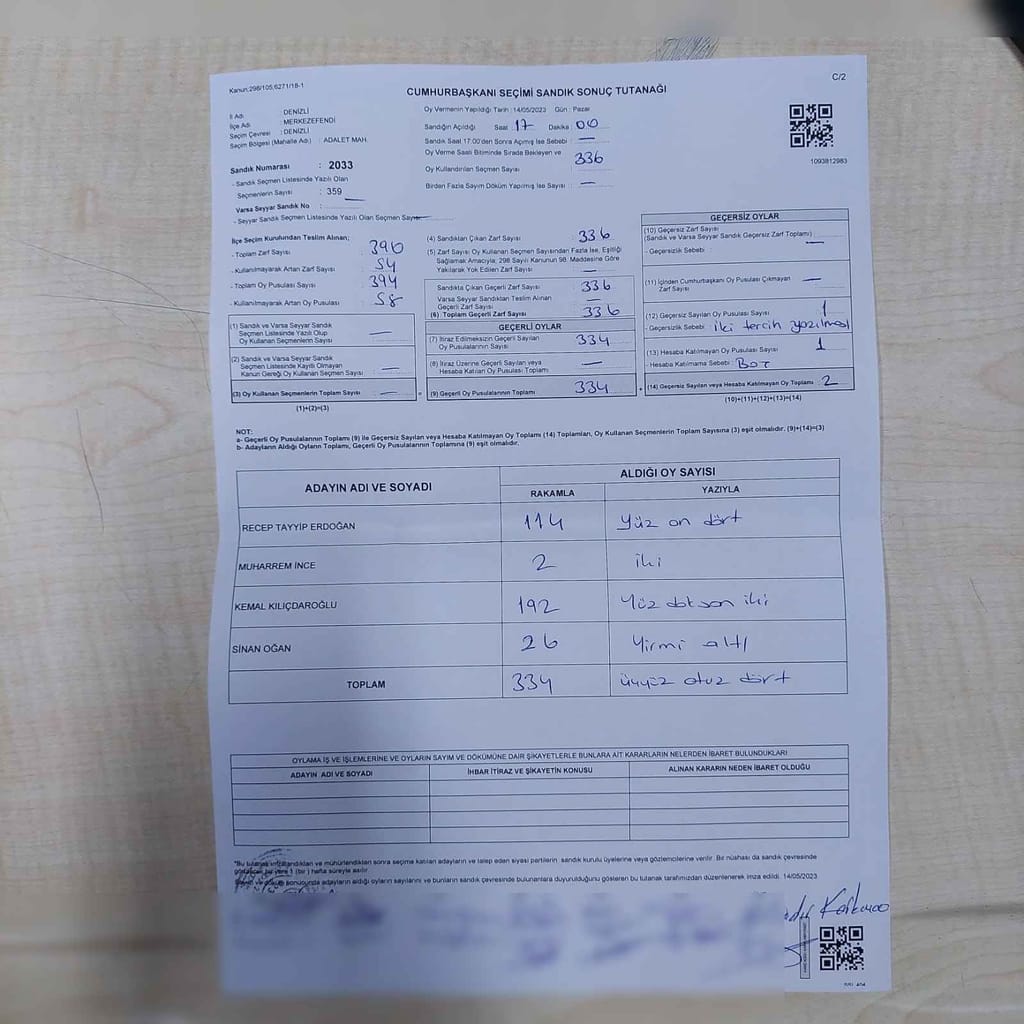 Kanun:298/105;6271/18-1
C/2
CUMHURBAŞKANI SEÇİMİ SANDIK SONUÇ TUTANAĞI
İl Adı : DENİZLİ
İlçe Adı : MERKEZEFENDİ
Seçim Çevresi : DENİZLİ
Seçim Bölgesi (Mahalle Adı) : ADALET MAH.
Oy Vermenin Yapıldığı Tarih : 14/05/2023 Gün : Pazar
Sandığın Açıldığı Saat 17 Dakika : 00
Sandık Saat 17:00'den Sonra Açılmış İse Sebebi : —
Oy Verme Saati Bitiminde Sırada Bekleyen ve
Oy Kullandırılan Seçmen Sayısı : 336
Birden Fazla Sayım Döküm Yapılmış İse Sayısı : —
1093812983
Sandık Numarası : 2033
- Sandık Seçmen Listesinde Yazılı Olan
Seçmenlerin Sayısı : 359
Varsa Seyyar Sandık No : —
- Seyyar Sandık Seçmen Listesinde Yazılı Olan Seçmen Sayısı —
İlçe Seçim Kurulundan Teslim Alınan;
- Toplam Zarf Sayısı : 390
- Kullanılmayarak Artan Zarf Sayısı : 54
- Toplam Oy Pusulası Sayısı : 394
- Kullanılmayarak Artan Oy Pusulası : 58
(1) Sandık ve Varsa Seyyar Sandık
Seçmen Listesinde Yazılı Olup
Oy Kullanan Seçmenlerin Sayısı : —
(2) Sandık ve Varsa Seyyar Sandık
Seçmen Listesinde Kayıtlı Olmayan
Kanun Gereği Oy Kullanan Seçmen Sayısı : —
(3) Oy Kullanan Seçmenlerin Toplam Sayısı : —
(1)+(2)=(3)
(4) Sandıktan Çıkan Zarf Sayısı : 336
(5) Zarf Sayısı Oy Kullanan Seçmen Sayısından Fazla İse, Eşitliği
Sağlamak Amacıyla; 298 Sayılı Kanunun 98. Maddesine Göre
Yakılarak Yok Edilen Zarf Sayısı : —
Sandıkta Çıkan Geçerli Zarf Sayısı : 336
Varsa Seyyar Sandıktan Teslim Alınan
Geçerli Zarf Sayısı : —
(6) Toplam Geçerli Zarf Sayısı : 336
GEÇERLİ OYLAR
(7) İtiraz Edilmeksizin Geçerli Sayılan
Oy Pusulalarının Sayısı : 334
(8) İtiraz Üzerine Geçerli Sayılan veya
Hesaba Katılan Oy Pusulası Toplamı : —
= (9) Geçerli Oy Pusulalarının Toplamı : 334 +
GEÇERSİZ OYLAR
(10) Geçersiz Zarf Sayısı
(Sandık ve Varsa Seyyar Sandık Geçersiz Zarf Toplamı) : —
- Geçersizlik Sebebi :
(11) İçinden Cumhurbaşkanı Oy Pusulası Çıkmayan
Zarf Sayısı : —
(12) Geçersiz Sayılan Oy Pusulası Sayısı : 1
- Geçersizlik Sebebi : iki tercih yazılması
(13) Hesaba Katılmayan Oy Pusulası Sayısı : 1
- Hesaba Katılmama Sebebi : Boş
(14) Geçersiz Sayılan veya Hesaba Katılmayan Oy Toplamı : 2
(10)+(11)+(12)+(13)=(14)
NOT:
a- Geçerli Oy Pusulalarının Toplamı (9) ile Geçersiz Sayılan veya Hesaba Katılmayan Oy Toplamı (14) Toplamları, Oy Kullanan Seçmenlerin Toplam Sayısına (3) eşit olmalıdır. (9)+(14)=(3)
b- Adayların Aldığı Oyların Toplamı, Geçerli Oy Pusulalarının Toplamına (9) eşit olmalıdır.
ADAYIN ADI VE SOYADI ALDIĞI OY SAYISI
RAKAMLA YAZIYLA
RECEP TAYYİP ERDOĞAN 114 Yüz on dört
MUHARREM İNCE 2 iki
KEMAL KILIÇDAROĞLU 192 Yüz doksan iki
SİNAN OĞAN 26 Yirmi altı
TOPLAM 334 üçyüz otuz dört
OYLAMA İŞ VE İŞLEMLERİNE VE OYLARIN SAYIM VE DÖKÜMÜNE DAİR ŞİKAYETLERLE BUNLARA AİT KARARLARIN NELERDEN İBARET BULUNDUKLARI
ADAYIN ADI VE SOYADI İHBAR İTİRAZ VE ŞİKAYETİN KONUSU ALINAN KARARIN NEDEN İBARET OLDUĞU
*Bu tutanak imzalandıktan ve mühürlendikten sonra seçime katılan adayların ve talep eden siyasi partilerin sandık kurulu üyelerine veya gözlemcilerine verilir. Bir nüshası da sandık çevresinde
görülecek bir yere 1 (bir) hafta süreyle asılır.
Sayım ve döküm sonucunda adayların aldığı oyların sayılarını ve bunların sandık çevresinde bulunanlara duyurulduğunu gösteren bu tutanak tarafımızdan düzenlenerek imza edildi. 14/05/2023